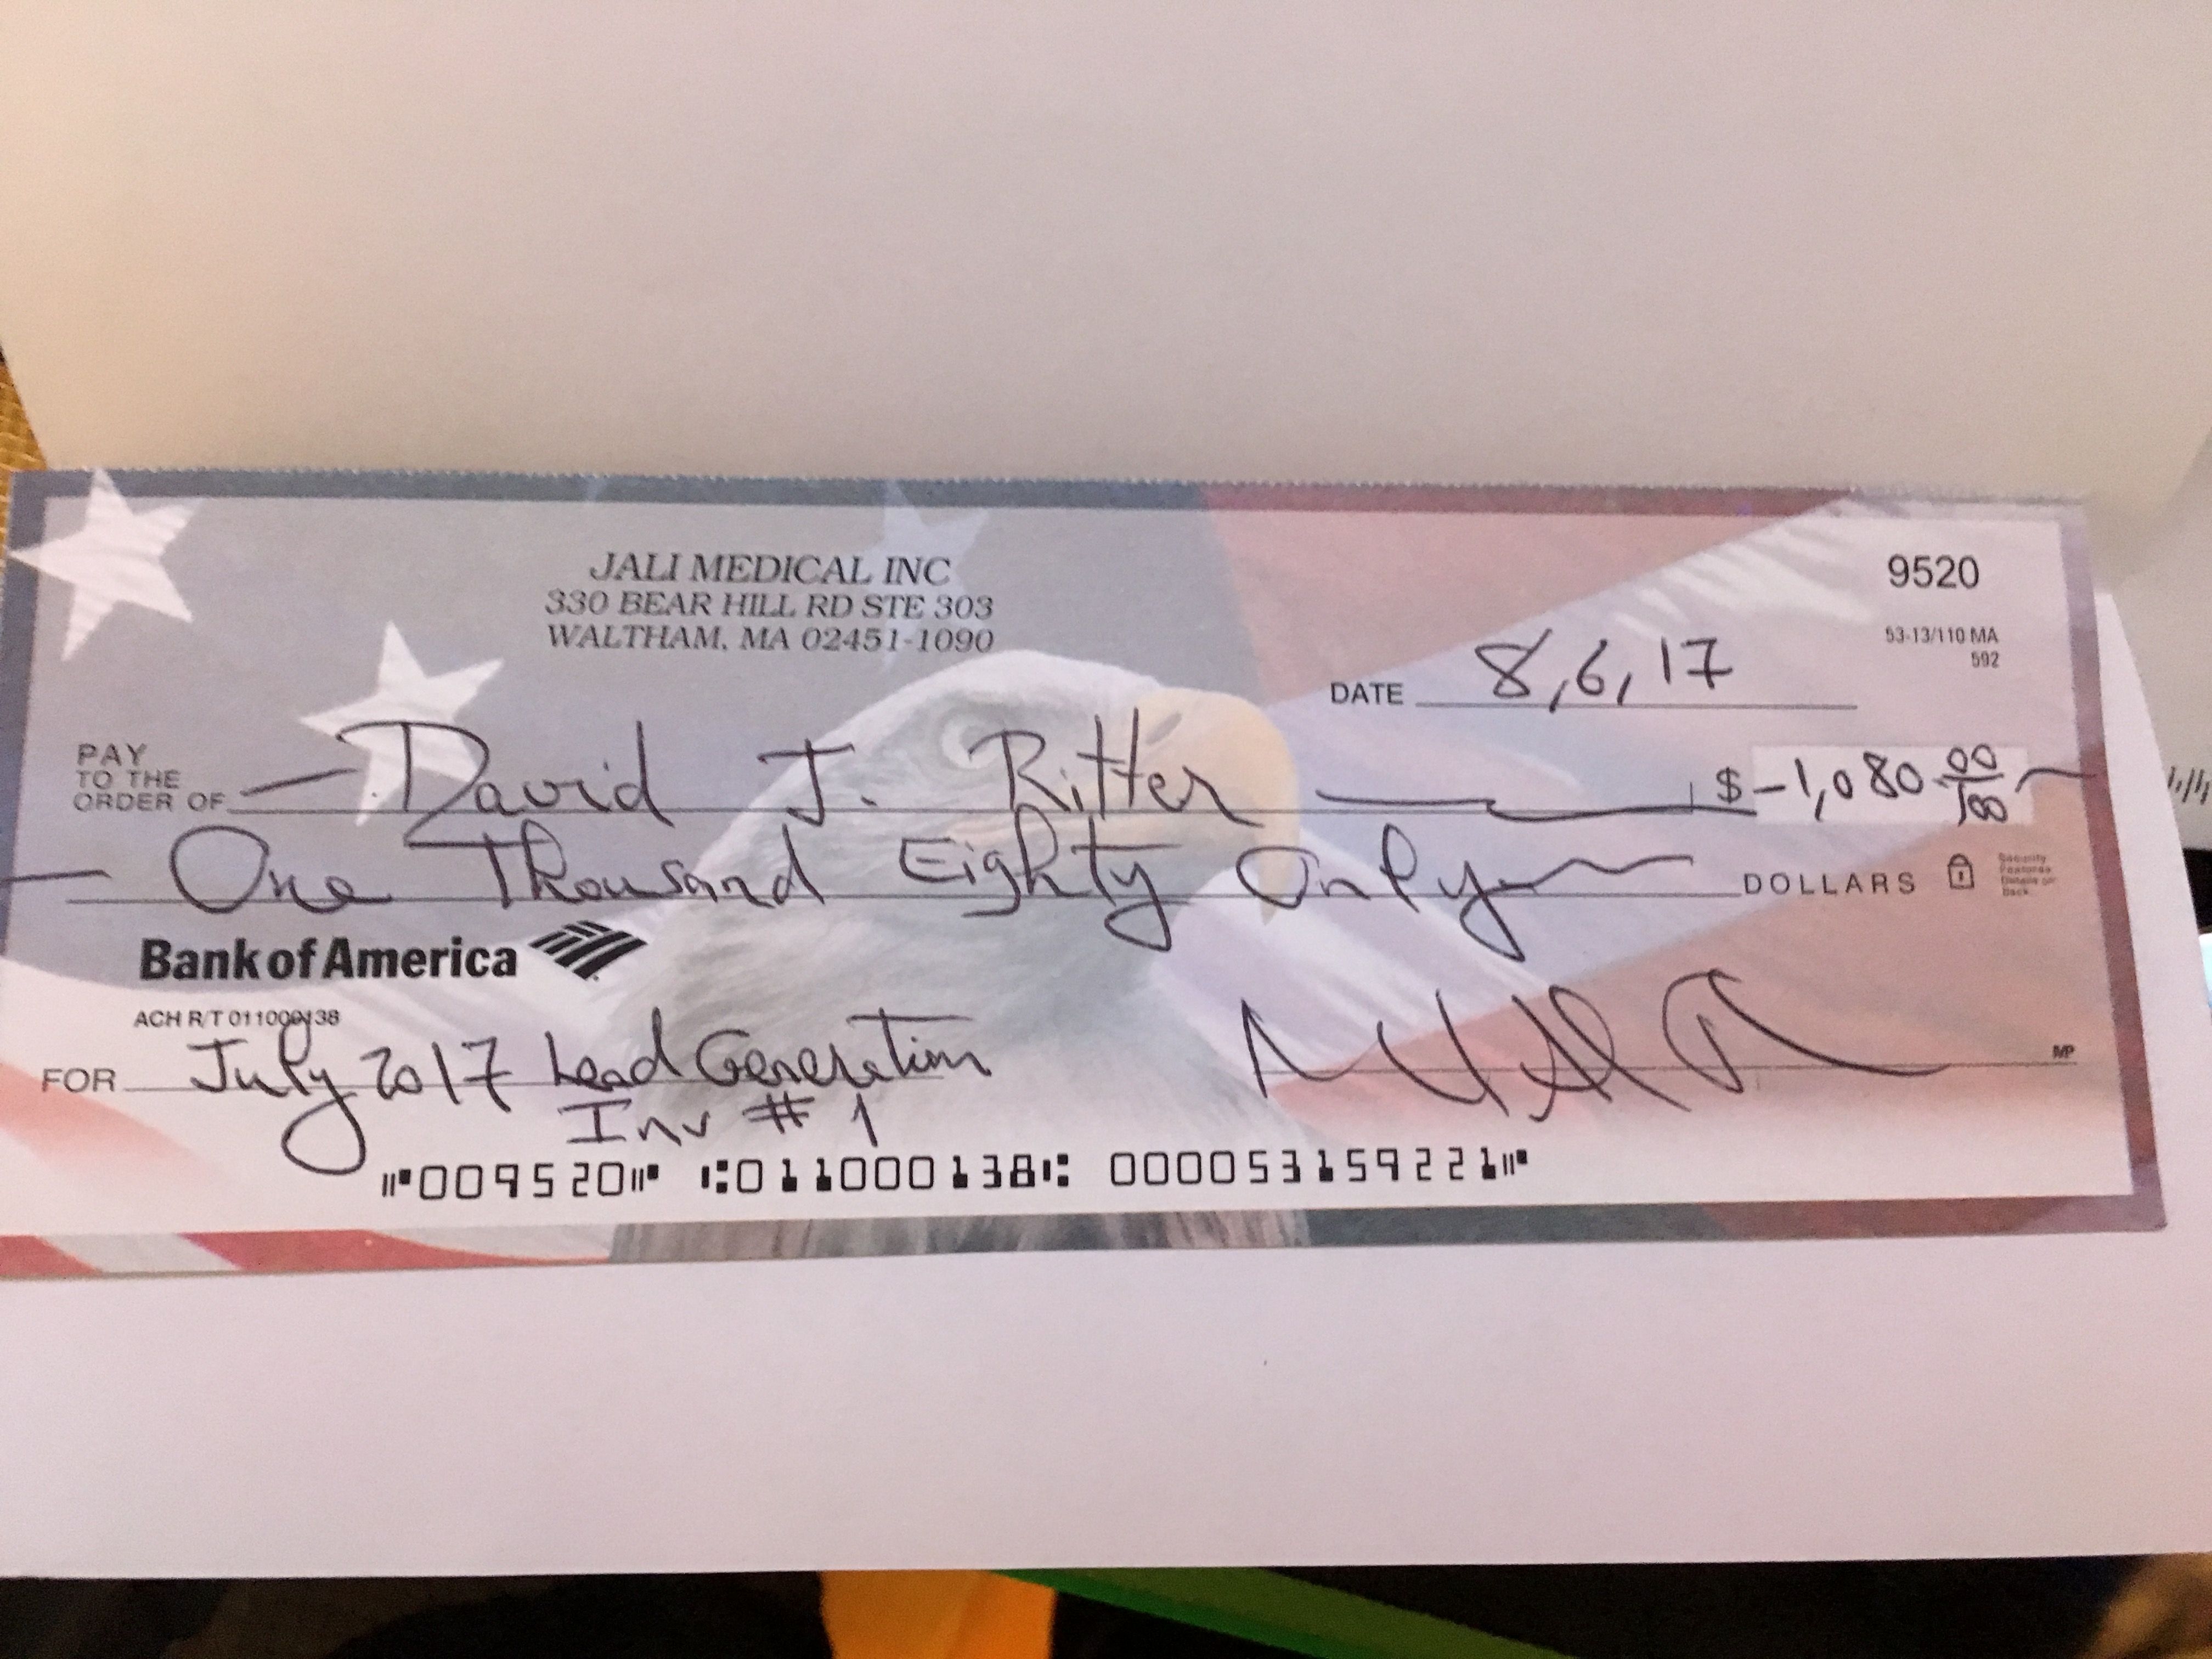 JALI MEDICAL INC
330 BEAR HILL RD STE 303
WALTHAM, MA 02451-1090
9520
53-13/110 MA
592
DATE 8,6,17
PAY
TO THE
ORDER OF David J. Ritter $ 1,080 00/100
One Thousand Eighty Only DOLLARS
Security
Features
Details on
Back
Bank of America
ACH R/T 011000138
FOR July 2017 Lead Generation
Inv # 1
MP
⑈009520⑈ ⑆011000138⑆ 000053159221⑈